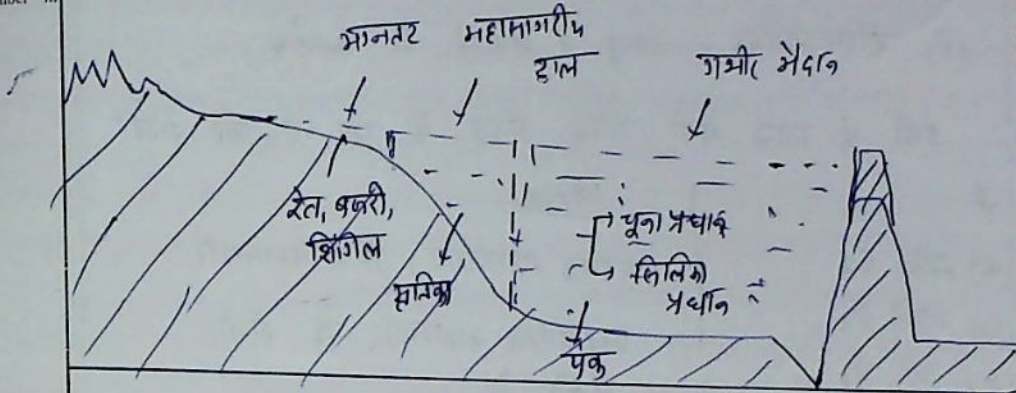 मग्नतट
महासागरीय
ढाल
गभीर मैदान
रेत, बजरी,
शिंगिल
मृतिका
चूना प्रधान
सिलिका
प्रधान
पंक